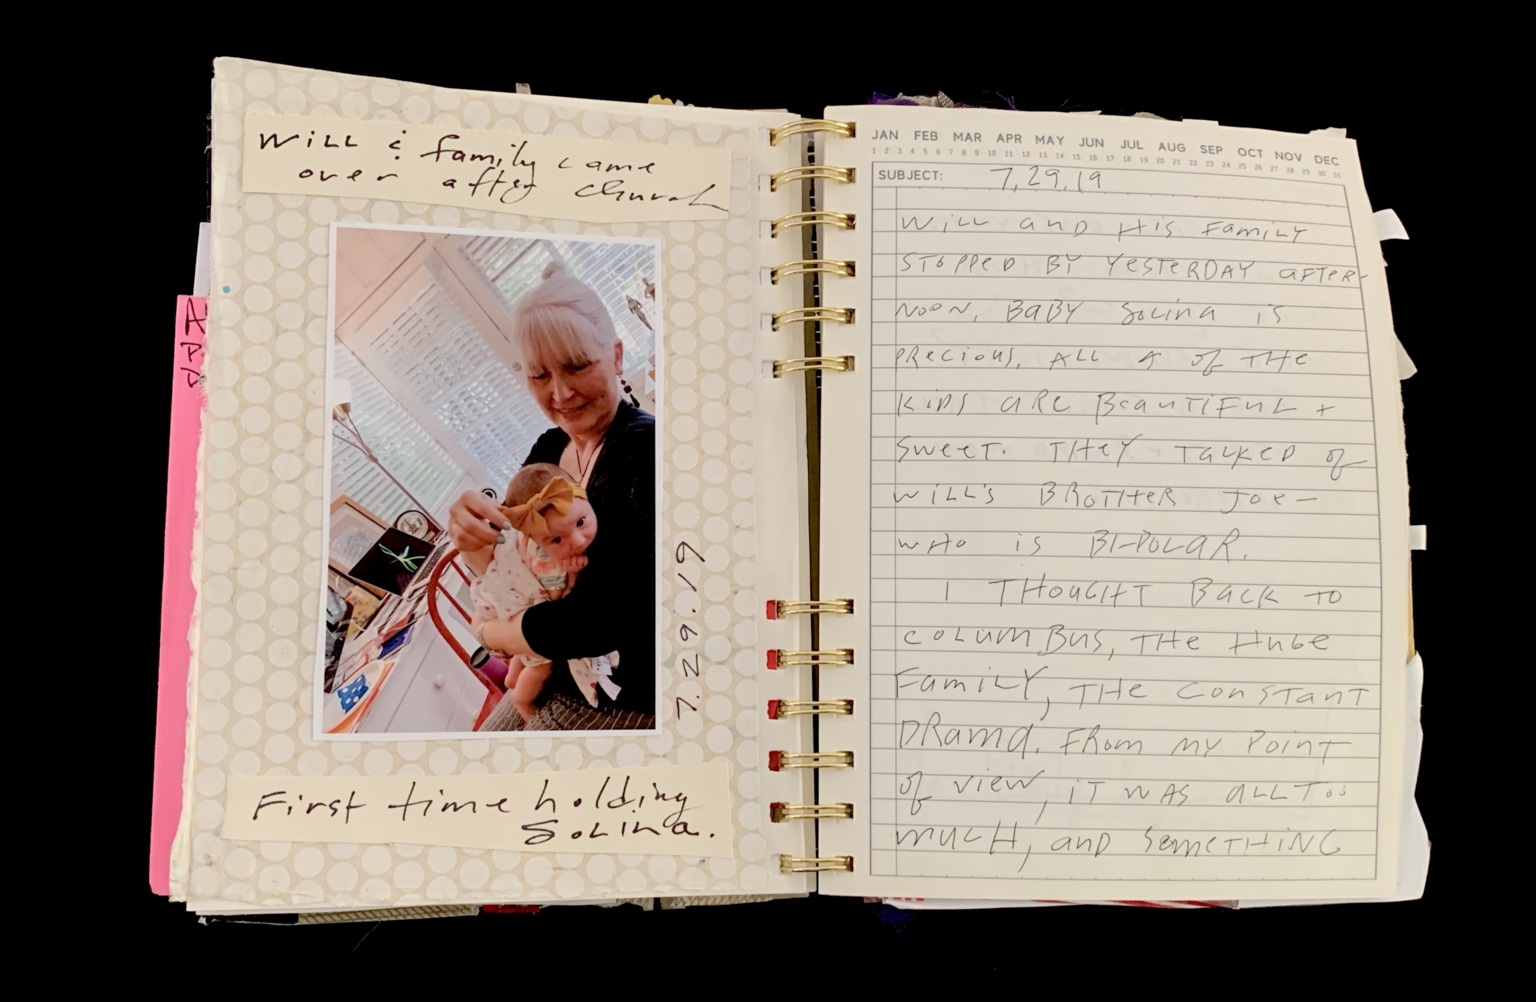 Will & family came
over after church
7.29.19
First time holding
Solina.
JAN FEB MAR APR MAY JUN JUL AUG SEP OCT NOV DEC
1 2 3 4 5 6 7 8 9 10 11 12 13 14 15 16 17 18 19 20 21 22 23 24 25 26 27 28 29 30 31
SUBJECT: 7.29.19
WILL AND HIS FAMILY
STOPPED BY YESTERDAY AFTER-
NOON. BABY SOLINA IS
PRECIOUS. ALL 4 OF THE
KIDS ARE BEAUTIFUL +
SWEET. THEY TALKED OF
WILL'S BROTHER JOE—
WHO IS BI-POLAR.
I THOUGHT BACK TO
COLUMBUS, THE HUGE
FAMILY, THE CONSTANT
DRAMA. FROM MY POINT
OF VIEW, IT WAS ALL TOO
MUCH, AND SOMETHING